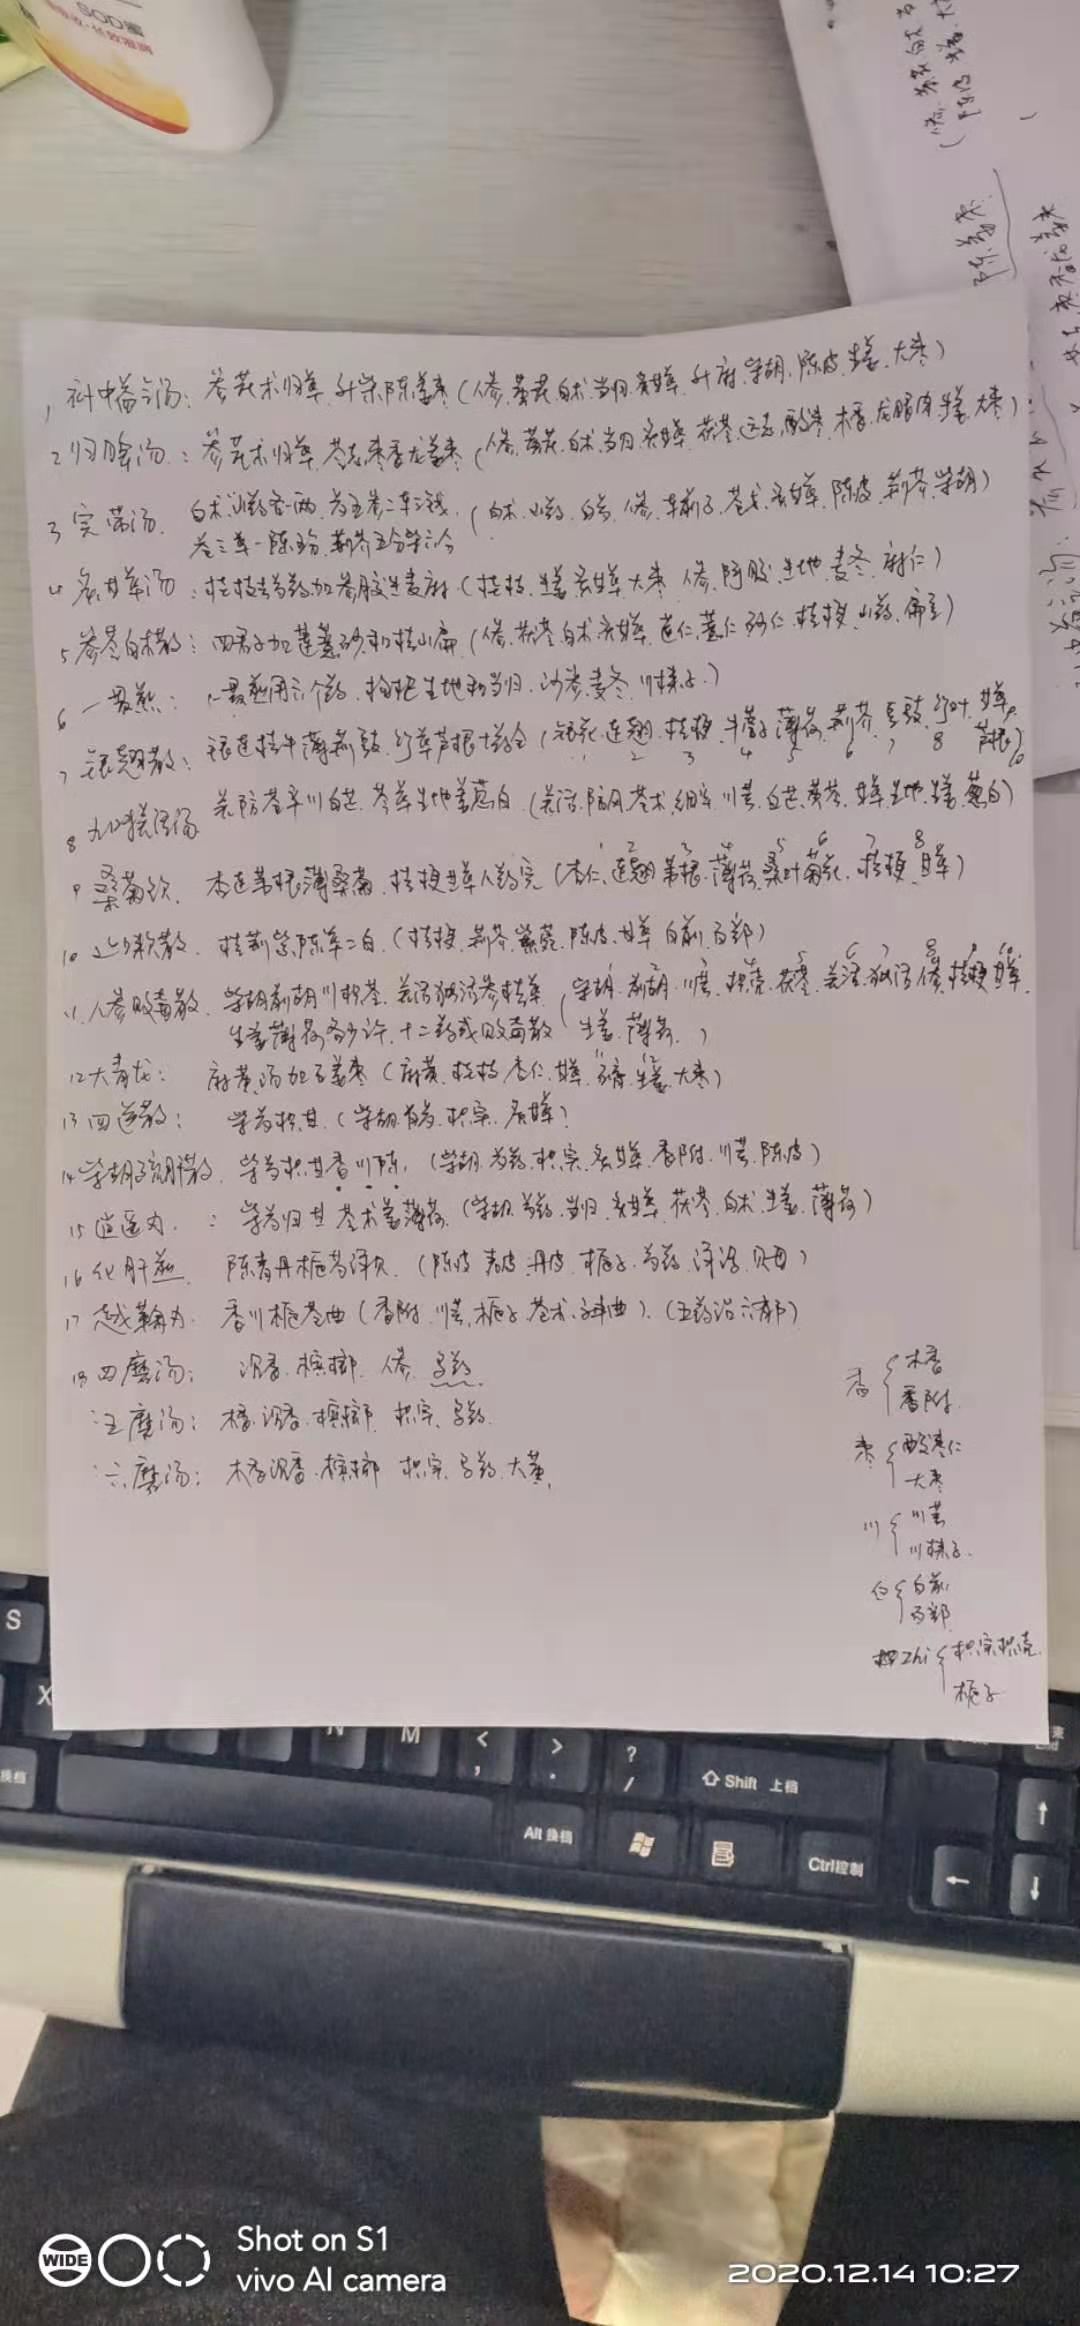 SOD蜜
1 补中益气汤：参芪术归草，升柴陈姜枣（人参、黄芪、白术、当归、炙甘草、升麻、柴胡、陈皮、生姜、大枣）
2 归脾汤：参芪术归草，苓志枣香龙姜枣（人参、黄芪、白术、当归、炙甘草、茯苓、远志、酸枣、木香、龙眼肉、生姜、大枣）
3 完带汤 白术山药各一两，芍五参二车三钱，
苍三草一陈五分，荆芥五分柴六分（白术、山药、白芍、人参、车前子、苍术、炙甘草、陈皮、荆芥、柴胡）
4 炙甘草汤：桂枝去芍药加参胶生麦麻（桂枝、生姜、炙甘草、大枣、人参、阿胶、生地、麦冬、麻仁）
5 参苓白术散：四君子加莲薏砂和桔山扁（人参、茯苓、白术、炙甘草、莲仁、薏仁、砂仁、桔梗、山药、扁豆）
6 一贯煎：一贯煎用六个药，枸杞生地和当归，沙参麦冬川楝子）
7 银翘散：银连桔牛薄荆豉，竹草芦根十药全（银花、连翘、桔梗、牛蒡子、薄荷、荆芥、豆豉、竹叶、甘草、芦根）
1 2 3 4 5 6 7 8 9 10
8 九味羌活汤 羌防苍辛川白芷，芩草生地姜葱白（羌活、防风、苍术、细辛、川芎、白芷、黄芩、甘草、生地、生姜、葱白）
1 2 3 4 5 6 7 8
9 桑菊饮 杏连苇根薄桑菊，桔梗甘草八药完（杏仁、连翘、苇根、薄荷、桑叶、菊花、桔梗、甘草）
10 止嗽散 桔荆紫陈草二白（桔梗、荆芥、紫菀、陈皮、甘草、白前、百部）
11 人参败毒散 柴胡前胡川枳苓，羌活独活参桔草
生姜薄荷各少许，十二药成败毒散（柴胡、前胡、川芎、枳壳、茯苓、羌活、独活、人参、桔梗、甘草、
生姜、薄荷）
12 大青龙：麻黄汤加石姜枣（麻黄、桂枝、杏仁、甘草、石膏、生姜、大枣）
13 四逆散：柴芍枳甘（柴胡、白芍、枳实、炙甘草）
14 柴胡疏肝散 柴芍枳甘香川陈（柴胡、芍药、枳实、炙甘草、香附、川芎、陈皮）
15 逍遥丸：柴芍归甘苓术姜薄荷（柴胡、芍药、当归、炙甘草、茯苓、白术、生姜、薄荷）
16 化肝煎 陈青丹栀芍泽贝（陈皮、青皮、丹皮、栀子、芍药、泽泻、贝母）
17 越鞠丸 香川栀苍曲（香附、川芎、栀子、苍术、神曲）（五药治六郁）
18 四磨汤：沉香、槟榔、人参、乌药
五磨汤：木香、沉香、槟榔、枳实、乌药
六磨汤：木香沉香、槟榔、枳实、乌药、大黄
香{木香
香附
枣{酸枣仁
大枣
川{川芎
川楝子
白{白前
百部
zhi{枳实枳壳
栀子
S
X
N
M
<
,
>
.
?
/
Shift 上档
换档
Alt 换档
Ctrl控制
WIDE
Shot on S1
vivo AI camera
2020.12.14 10:27